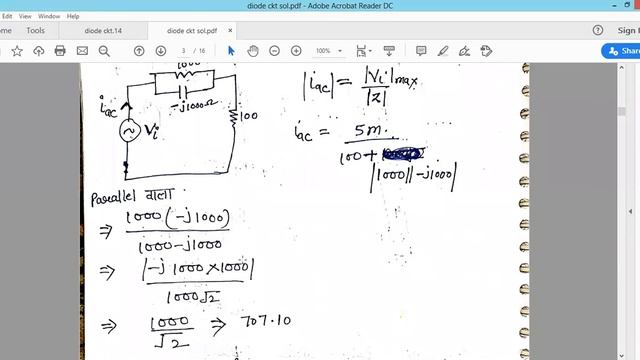 diode ckt sol.pdf - Adobe Acrobat Reader DC
diode ckt.14
diode ckt sol.pdf ×
Sign
3 / 16
100%
Share
1000
-j1000Ω
iac
Vi
100
|iac| = |Vi|max / |z|
iac = 5m. / 100 +
|1000 || -j1000|
Parallel वाला :
⇒ 1000(-j1000) / 1000-j1000
⇒ |-j1000×1000| / 1000√2
⇒ 1000 / √2 ⇒ 707.10